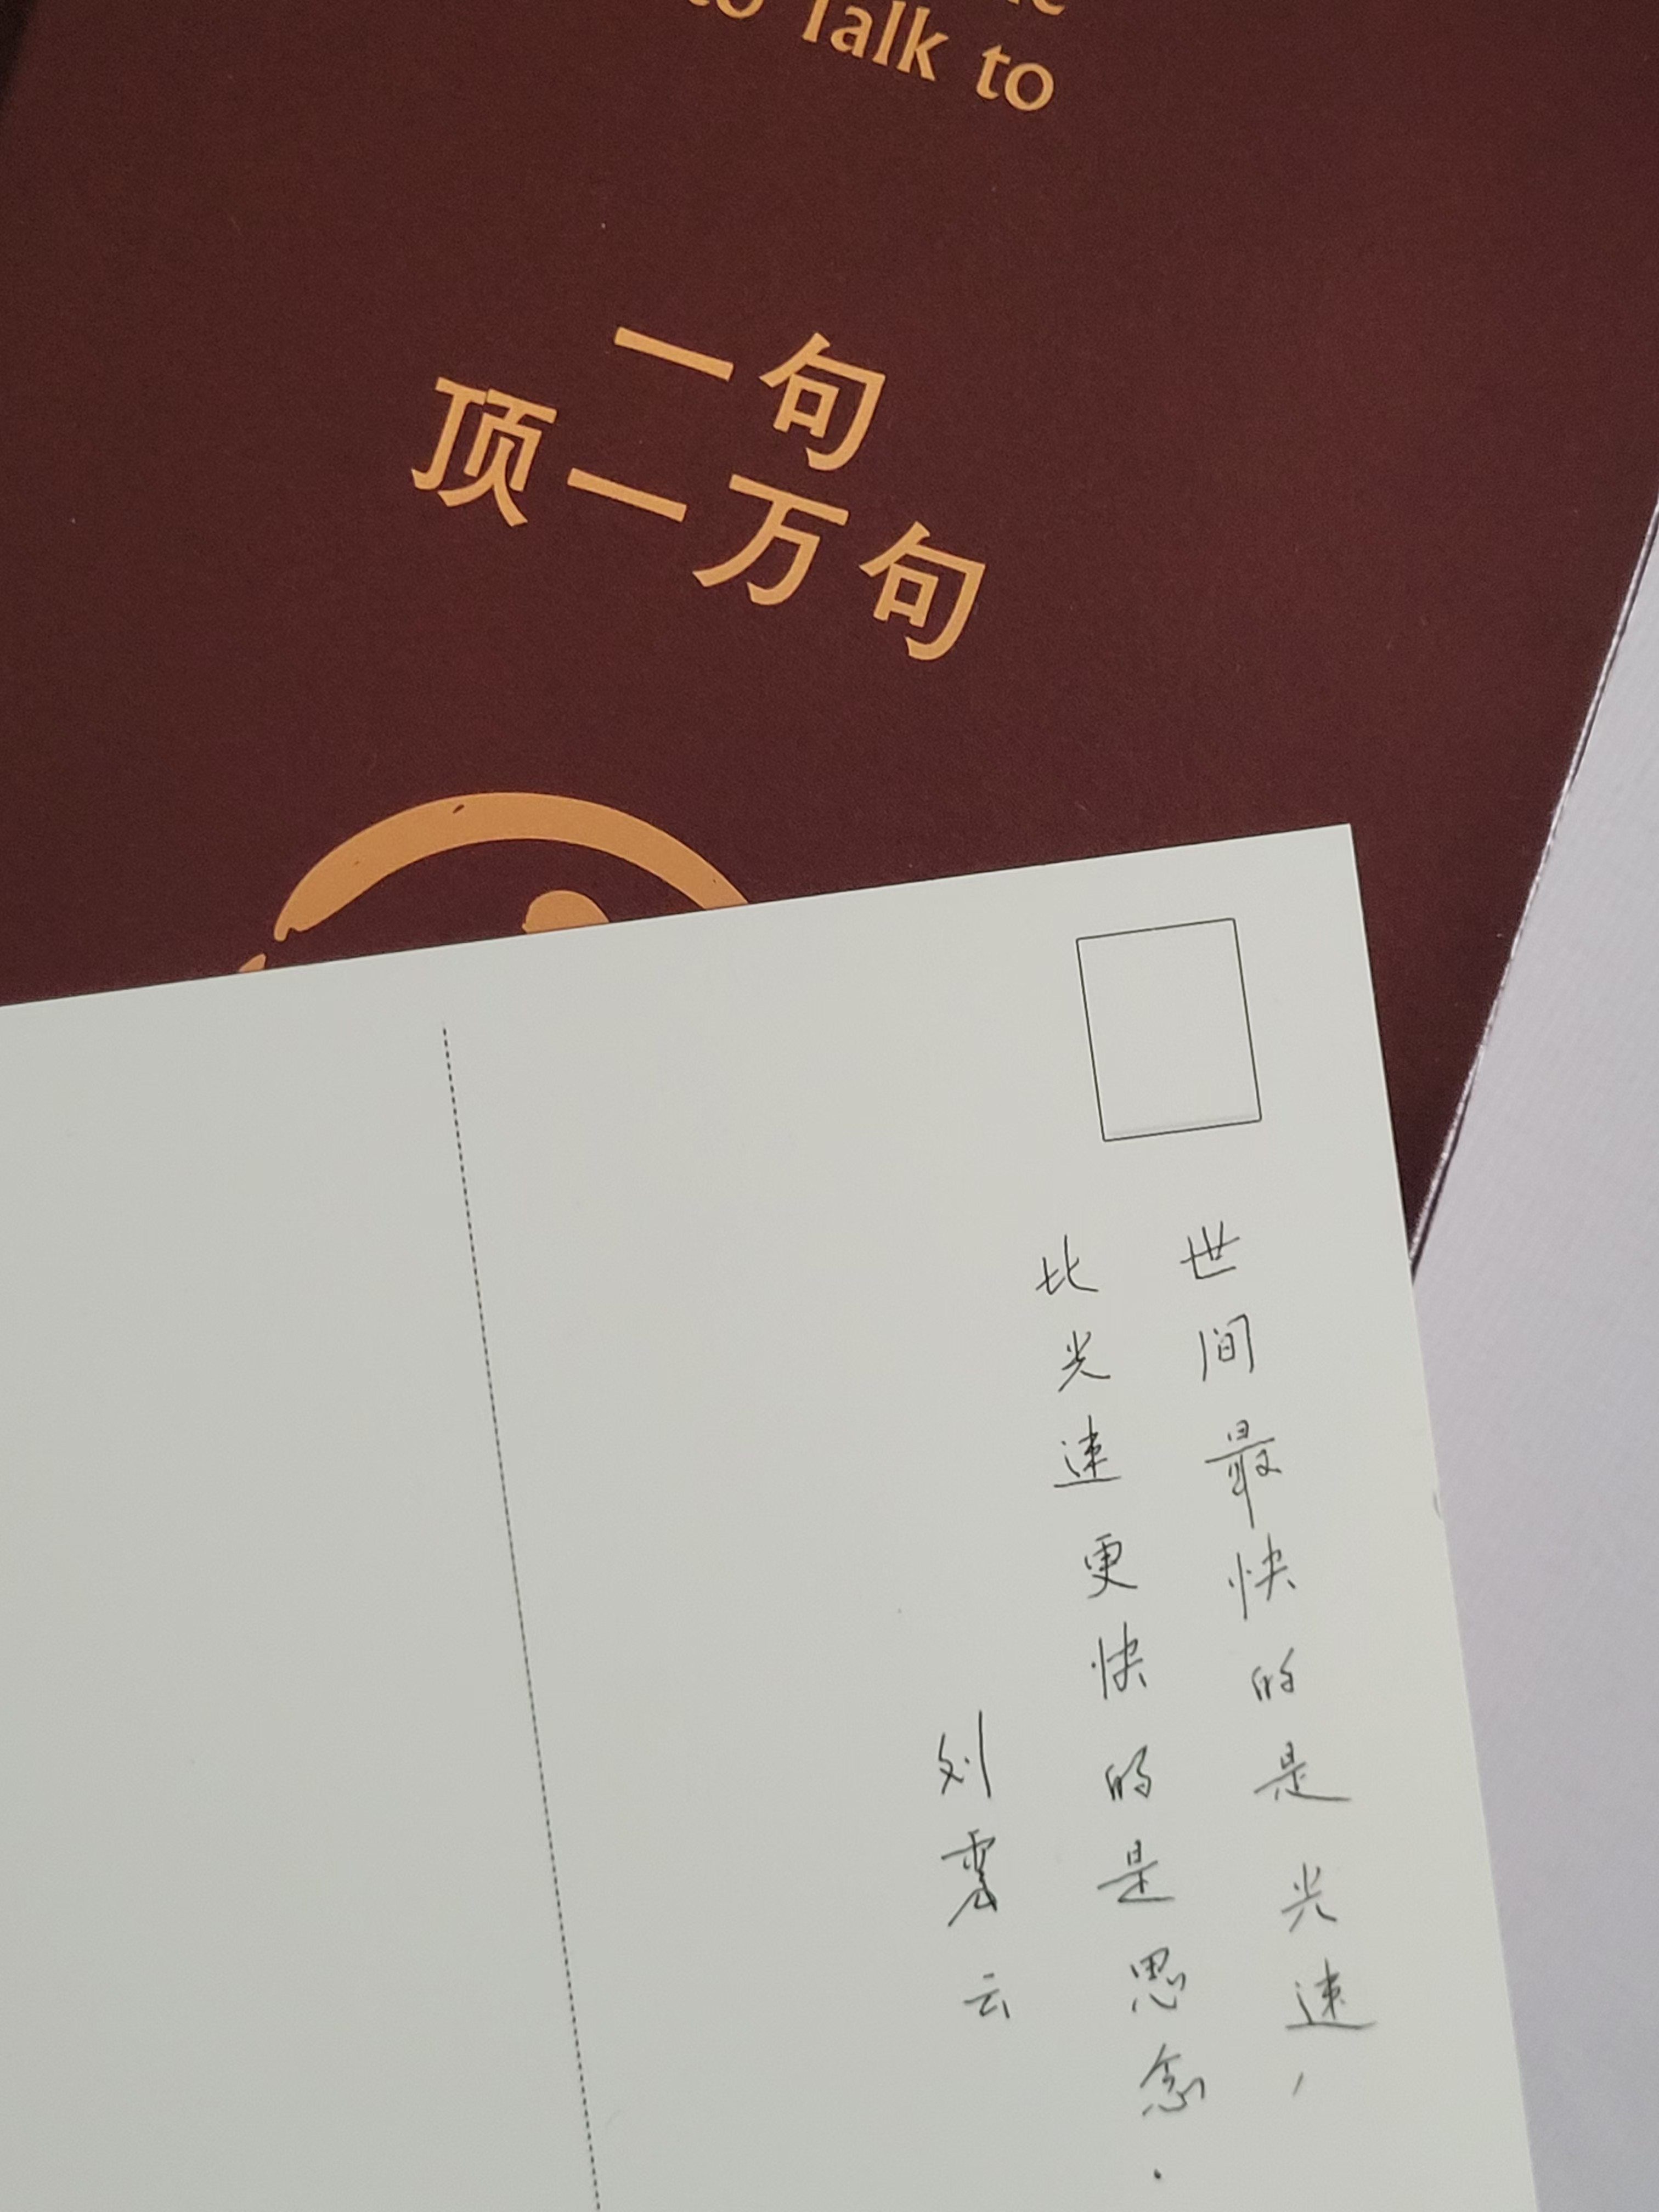 to Talk to
一句
顶一万句
世间最快的是光速，
比光速更快的是思念.
刘震云